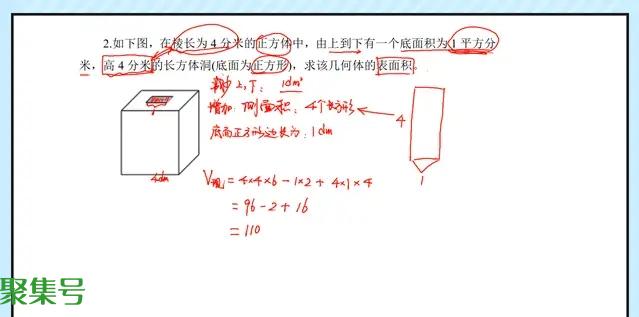 2.如下图，在棱长为4分米的正方体中，由上到下有一个底面积为1平方分
米，高4分米的长方体洞(底面为正方形)，求该几何体的表面积。
减少上、下：1dm²
增加：侧面积：4个长方形
底面正方形边长为：1dm
4
1
1
4dm
V现=4×4×6-1×2+4×1×4
=96-2+16
=110
聚集号